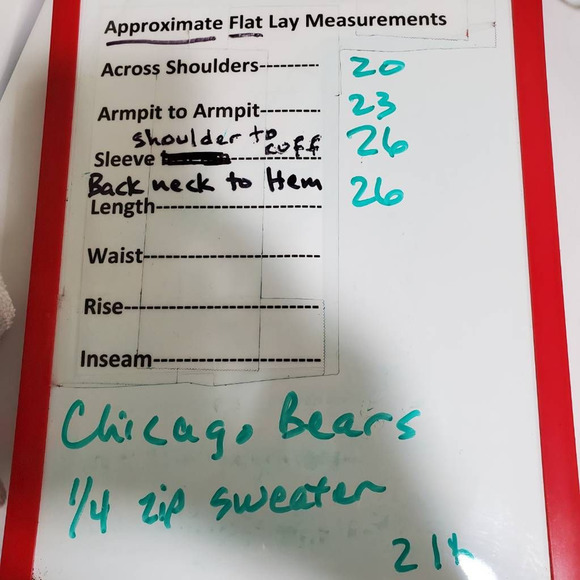 Approximate Flat Lay Measurements
Across Shoulders--------- 20
Armpit to Armpit--------- 23
shoulder to cuff
Sleeve ------------ 26
Back neck to Hem
Length------------------------- 26
Waist---------------------------
Rise------------------------------
Inseam-------------------------
Chicago Bears
1/4 zip sweater